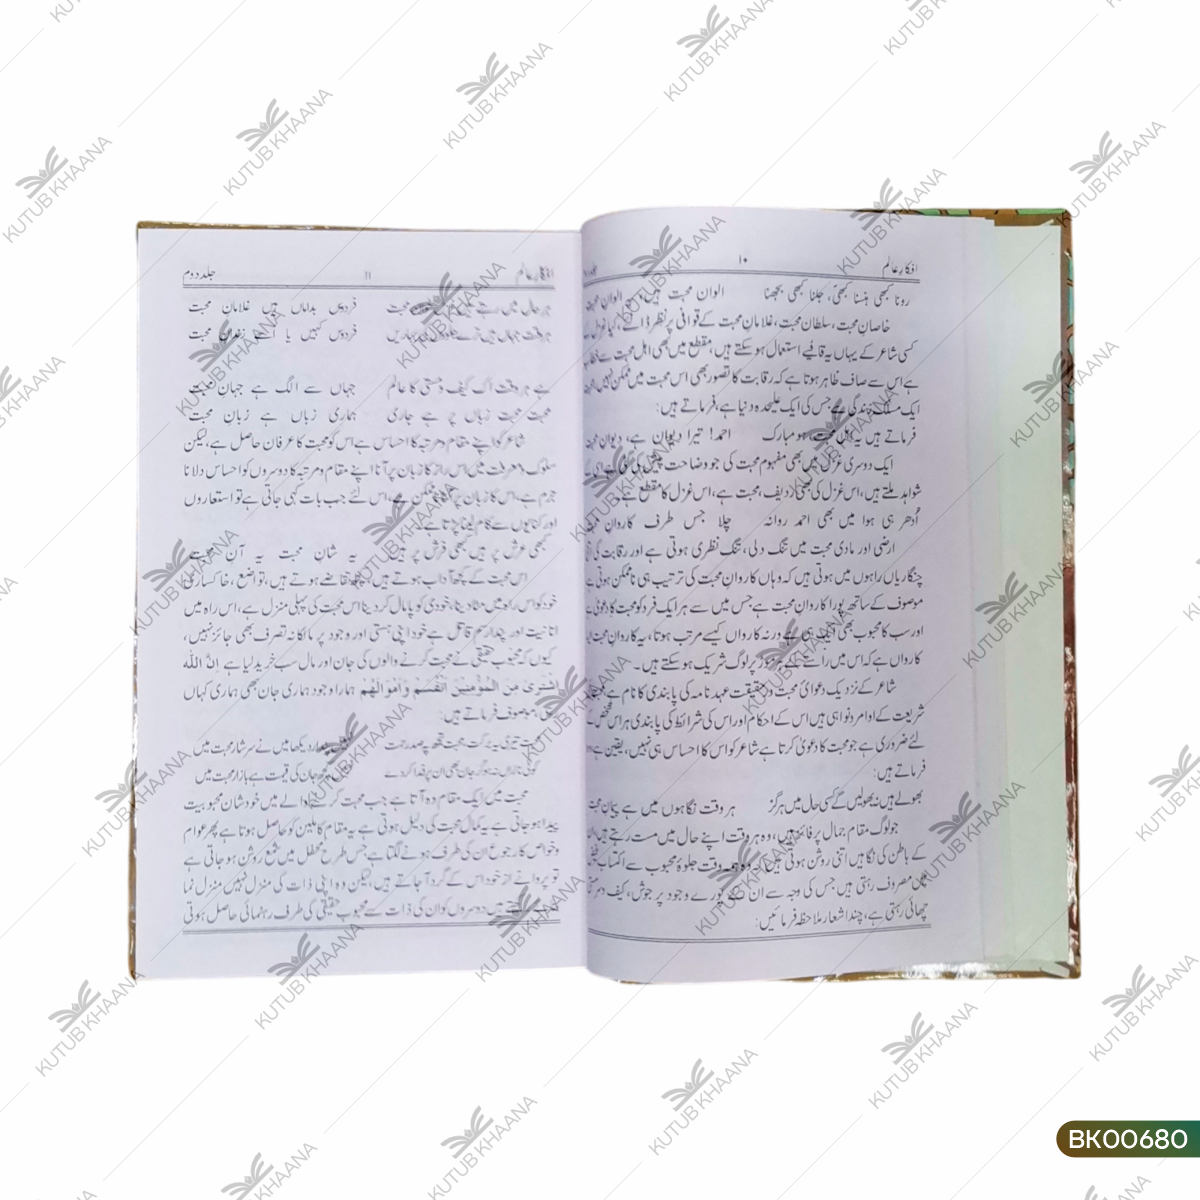 افکارِ عالم ۱۰
رونا کبھی ہنسنا کبھی، جلنا کبھی بجھنا الوان محبت ہیں، یہ الوانِ محبت
خاصانِ محبت، سلطان محبت، غلامانِ محبت کے قوافی پر نظر ڈالئے، کیا
کسی شاعر کے یہاں یہ قافیے استعمال ہو سکتے ہیں، مقطع میں بھی اہل محبت سے
ہے اس سے صاف ظاہر ہوتا ہے کہ رقابت کا تصور بھی اس محبت میں ممکن نہیں
ایک مسلک بندگی ہے جس کی ایک علیحدہ دنیا ہے، فرماتے ہیں:
فرماتے ہیں یہ اہل محبت، ہو مبارک احمد! تیرا دیوان ہے، دیوانِ محبت
ایک دوسری غزل میں بھی مفہوم محبت کی جو وضاحت پیش کی گئی ہے
شواہد ملتے ہیں، اس غزل کی بھی ردیف، محبت ہے، اس غزل کا مقطع ہے
اُدھر ہی ہوا میں بھی احمد روانہ چلا جس طرف کاروان محبت
ارضی اور مادی محبت میں تنگ دلی، تنگ نظری ہوتی ہے اور رقابت کی
چنگاریاں راہوں میں ہوتی ہیں کہ وہاں کاروان محبت کی ترتیب ہی ناممکن ہوتی ہے
موصوف کے ساتھ پورا کاروانِ محبت ہے جس میں سے ہر ایک فرد کو محبت کا دعویٰ
اور سب کا محبوب بھی ایک ہی ہے ورنہ کارواں کیسے مرتب ہوتا، یہ کاروانِ محبت
کارواں ہے کہ اس میں راستے کے ہر موڑ پر لوگ شریک ہو سکتے ہیں۔
شاعر کے نزدیک دعوائ محبت در حقیقت عہد نامہ کی پابندی کا نام ہے
شریعت کے اوامر و نواہی ہیں اس کے احکام اور اس کی شرائط کی پابندی ہر اس شخص
لئے ضروری ہے جو محبت کا دعویٰ کرتا ہے شاعر کو اس کا احساس ہی نہیں، یقین ہے
فرماتے ہیں:
بھولے ہیں نہ بھولیں گے کسی حال میں ہرگز ہر وقت نگاہوں میں ہے پیمانِ محبت
جو لوگ مقام جمال پر فائز ہیں، وہ ہر وقت اپنے حال میں مست رہتے ہیں
کے باطن کی نگاہیں اتنی روشن ہوتی ہیں کہ وہ ہمہ وقت جلوۂ محبوب سے اکتساب
میں مصروف رہتی ہیں جس کی وجہ سے ان کے پورے وجود پر جوش، کیف و مستی
چھائی رہتی ہے، چند اشعار ملاحظہ فرمائیں:
افکارِ عالم ۱۱ جلد دوم
ہر حال میں رہتے ہیں محبت فردوس بداماں ہیں غلامانِ محبت
ہر وقت جہاں میں بہاریں فردوس کہیں یا اسے زندانِ محبت
ہے ہر وقت اک کیف و مستی کا عالم جہاں سے الگ ہے جہانِ محبت
محبت محبت زباں پر ہے جاری ہماری زباں ہے زبانِ محبت
شاعر کو اپنے مقام و مرتبہ کا احساس ہے اس کو محبت کا عرفان حاصل ہے، لیکن
سلوک و معرفت میں اس راز کا زبان پر آنا اپنے مقام و مرتبہ کا دوسروں کو احساس دلانا
جرم ہے، اس کا زبان پر آنا ممکن ہے، اس لئے جب بات کہی جاتی ہے تو استعاروں
اور کنایوں سے کام لینا پڑتا ہے۔
کبھی عرش پر ہیں کبھی فرش پر ہیں یہ شان محبت یہ آن محبت
اس محبت کے کچھ آداب ہوتے ہیں، کچھ تقاضے ہوتے ہیں، تواضع، خاکساری
خود کو اس راہ میں مٹا دینا، خودی کو پامال کر دینا اس محبت کی پہلی منزل ہے، اس راہ میں
انانیت اور پندار سم قاتل ہے خود اپنی ہستی اور وجود پر مالکانہ تصرف بھی جائز نہیں،
کیوں کہ محبوب حقیقی نے محبت کرنے والوں کی جان اور مال سب خرید لیا ہے اِنَّ اللّٰہَ
اشْتَرٰی مِنَ الْمُؤْمِنِیْنَ اَنْفُسَہُمْ وَاَمْوَالَہُمْ ہمارا وجود ہماری جان بھی ہماری کہاں
موصوف فرماتے ہیں:
تیری برکت محبت تجھ پہ صد رحمت دیکھا میں نے سرشار محبت میں
کوئی ناداں نہ ہوگر جان بھی ان پر فدا کر دے کچھ جان کی قیمت ہے بازارِ محبت میں
محبت میں ایک مقام وہ آتا ہے جب محبت کرنے والے میں خود شان محبوبیت
پیدا ہو جاتی ہے یہ کمال محبت کی دلیل ہوتی ہے یہ مقام کاملین کو حاصل ہوتا ہے پھر عوام
و خواص کا رجوع ان کی طرف ہونے لگتا ہے جس طرح محفل میں شمع روشن ہو جاتی ہے
تو پروانے از خود اس کے گرد آ جاتے ہیں، لیکن وہ اپنی ذات کی منزل نہیں، منزل نما
ہیں دوسروں کو ان کی ذات سے محبوب حقیقی کی طرف رہنمائی حاصل ہوتی
KUTUB KHAANA
BK00680